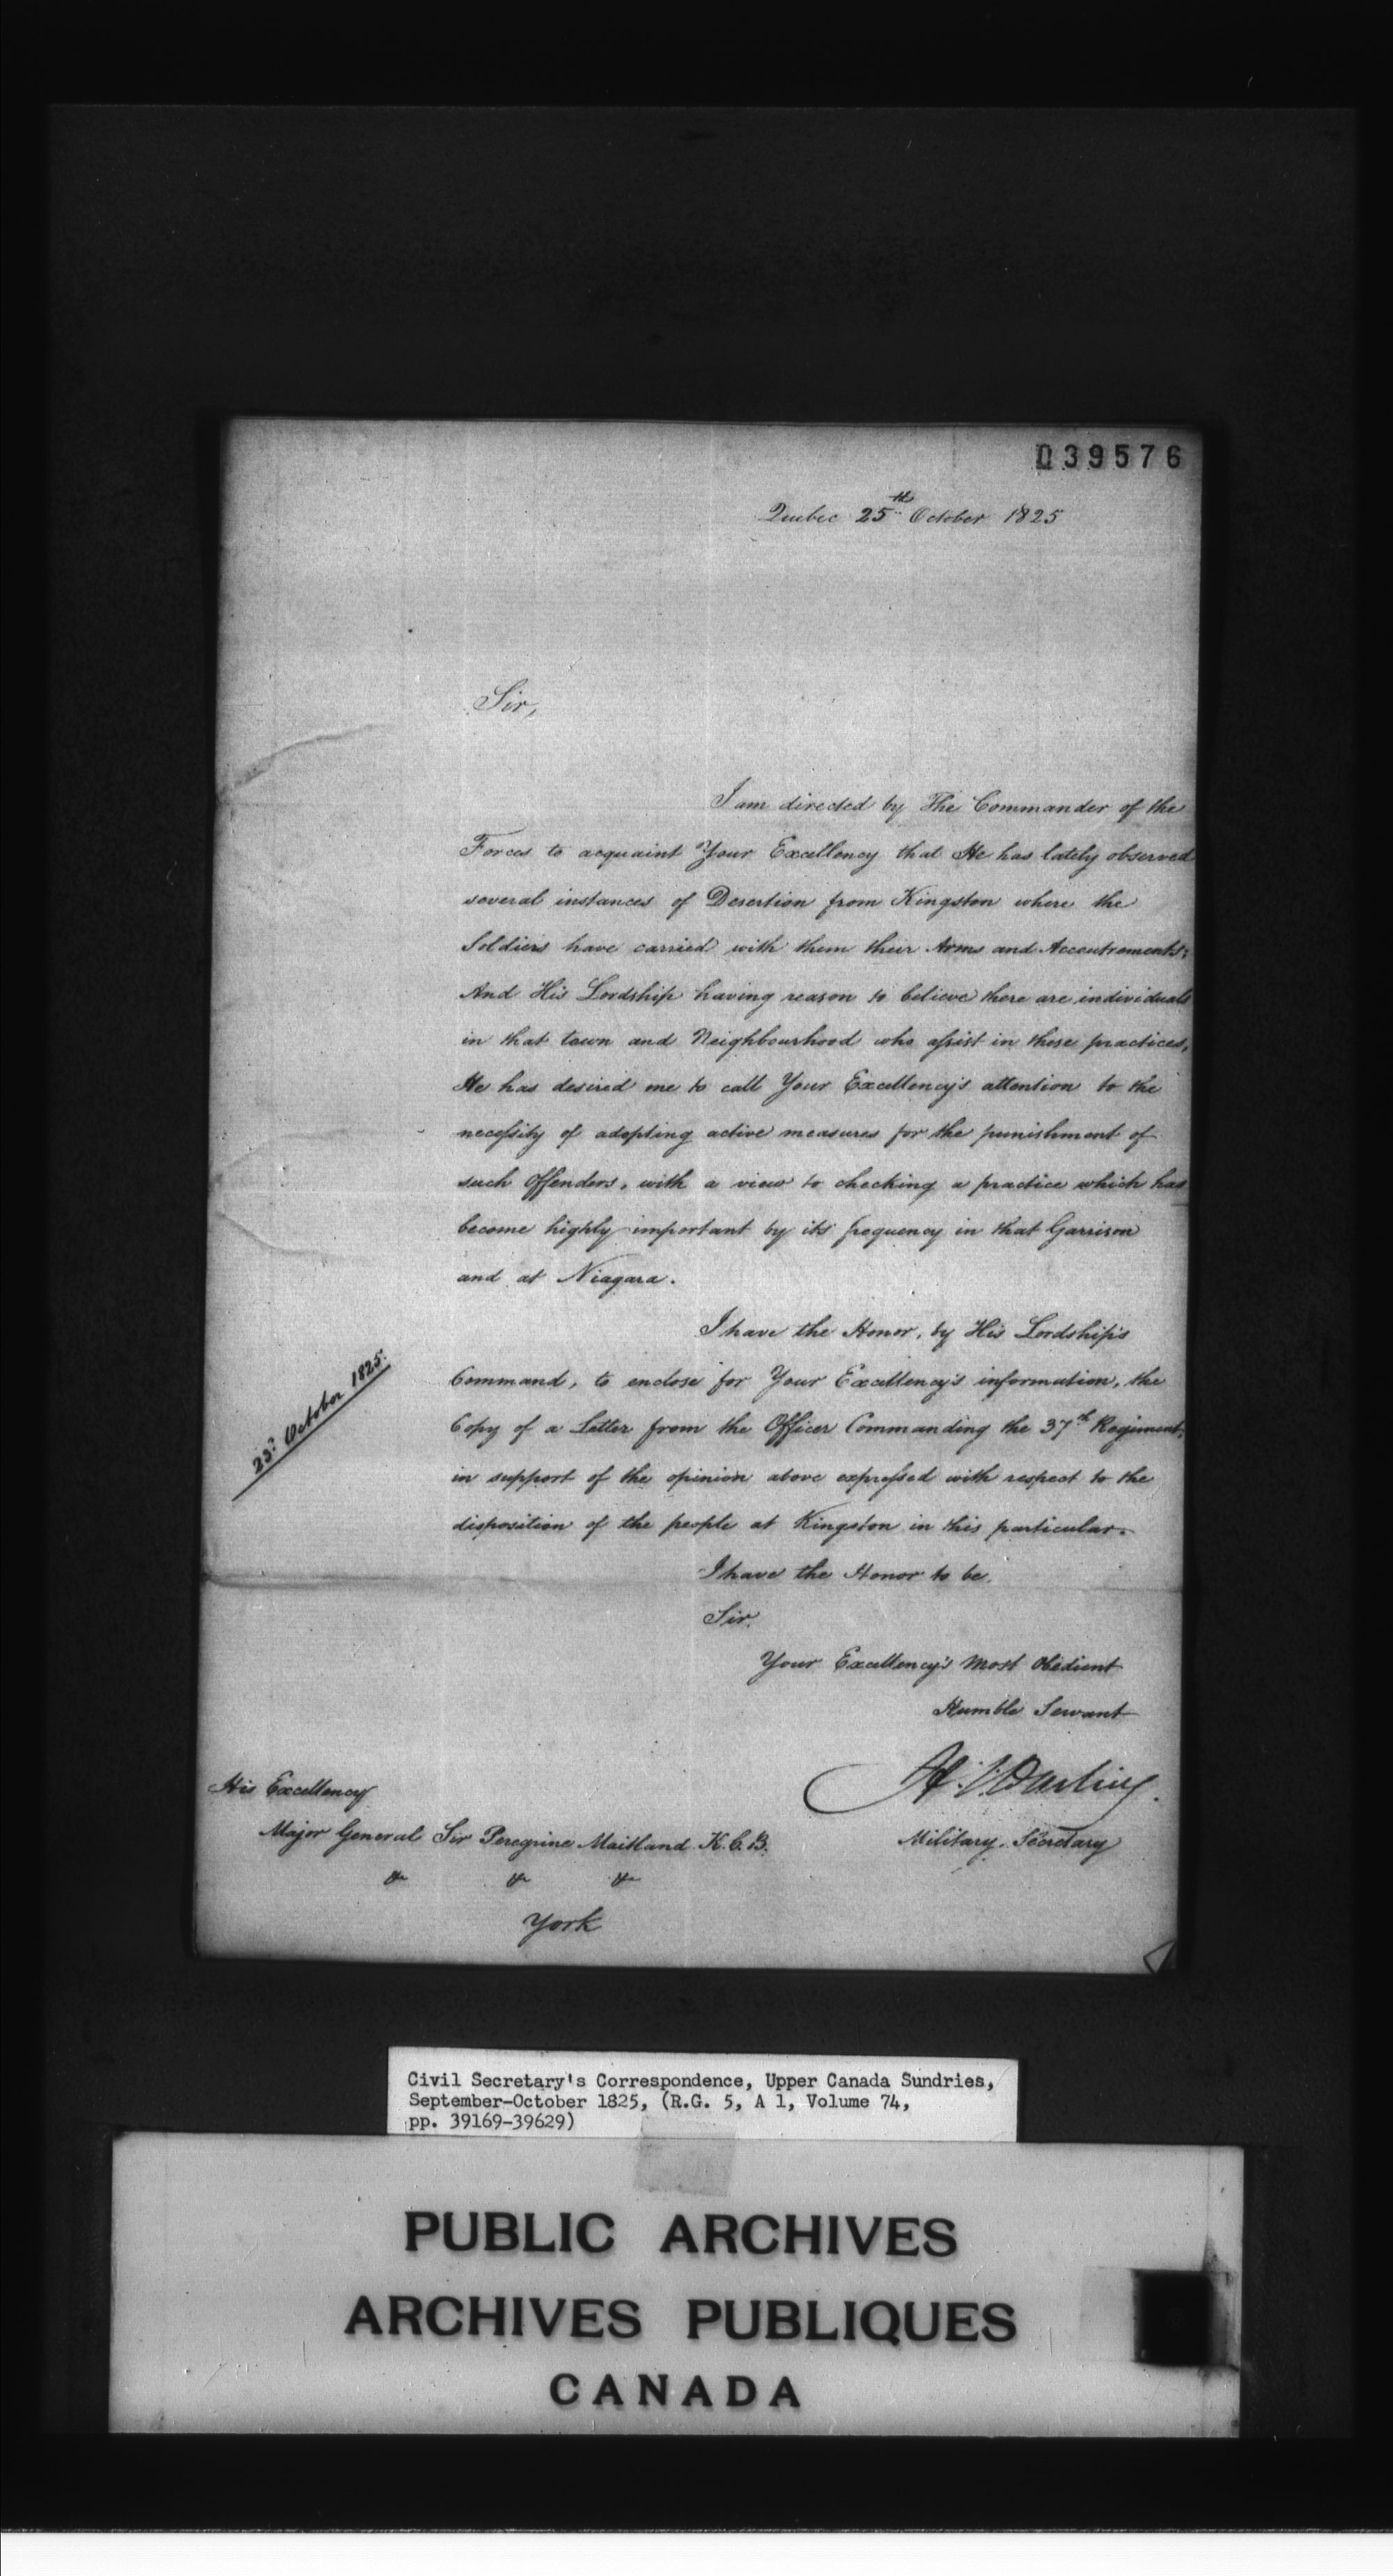 039576
Quebec 25th October 1825
Sir,
I am directed by The Commander of the
Forces to acquaint Your Excellency that He has lately observed
several instances of Desertion from Kingston where the
Soldiers have carried with them their Arms and Accoutrements;
And His Lordship having reason to believe there are individuals
in that town and Neighbourhood who assist in these practices,
He has desired me to call Your Excellency's attention to the
necessity of adopting active measures for the punishment of
such Offenders, with a view to checking a practice which has
become highly important by its frequency in that Garrison
and at Niagara.
I have the Honor, by His Lordship's
Command, to enclose for Your Excellency's information, the
Copy of a Letter from the Officer Commanding the 37th Regiment,
in support of the opinion above expressed with respect to the
disposition of the people at Kingston in this particular.
23d October 1825.
I have the Honor to be,
Sir,
Your Excellency's Most Obedient
Humble Servant
H. C. Darling.
Military Secretary
His Excellency
Major General Sir Peregrine Maitland K.C.B.
&c &c &c
York
Civil Secretary's Correspondence, Upper Canada Sundries,
September-October 1825, (R.G. 5, A 1, Volume 74,
pp. 39169-39629)
PUBLIC ARCHIVES
ARCHIVES PUBLIQUES
CANADA